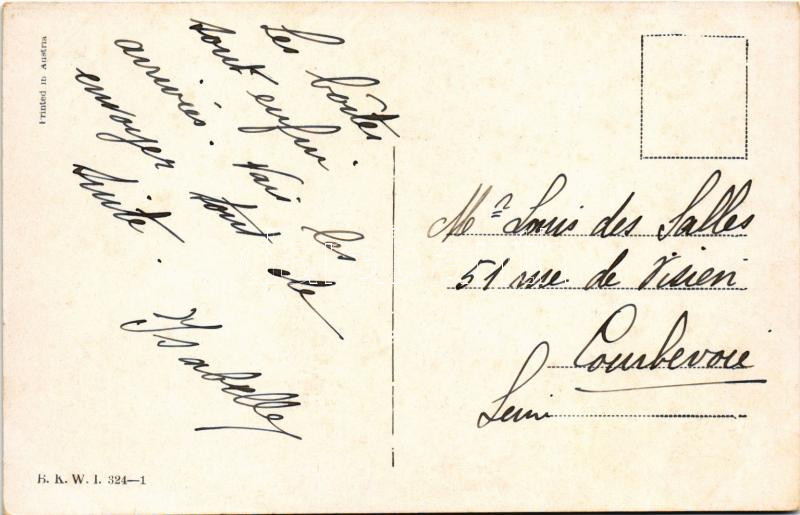 Printed in Austria
Les boîtes
sont enfin
arrivées. Vais les
envoyer tout de
suite.
Isabelle
Mr Louis des Salles
51 rue de
Courbevoie
Seine
B. K. W. I. 324—1